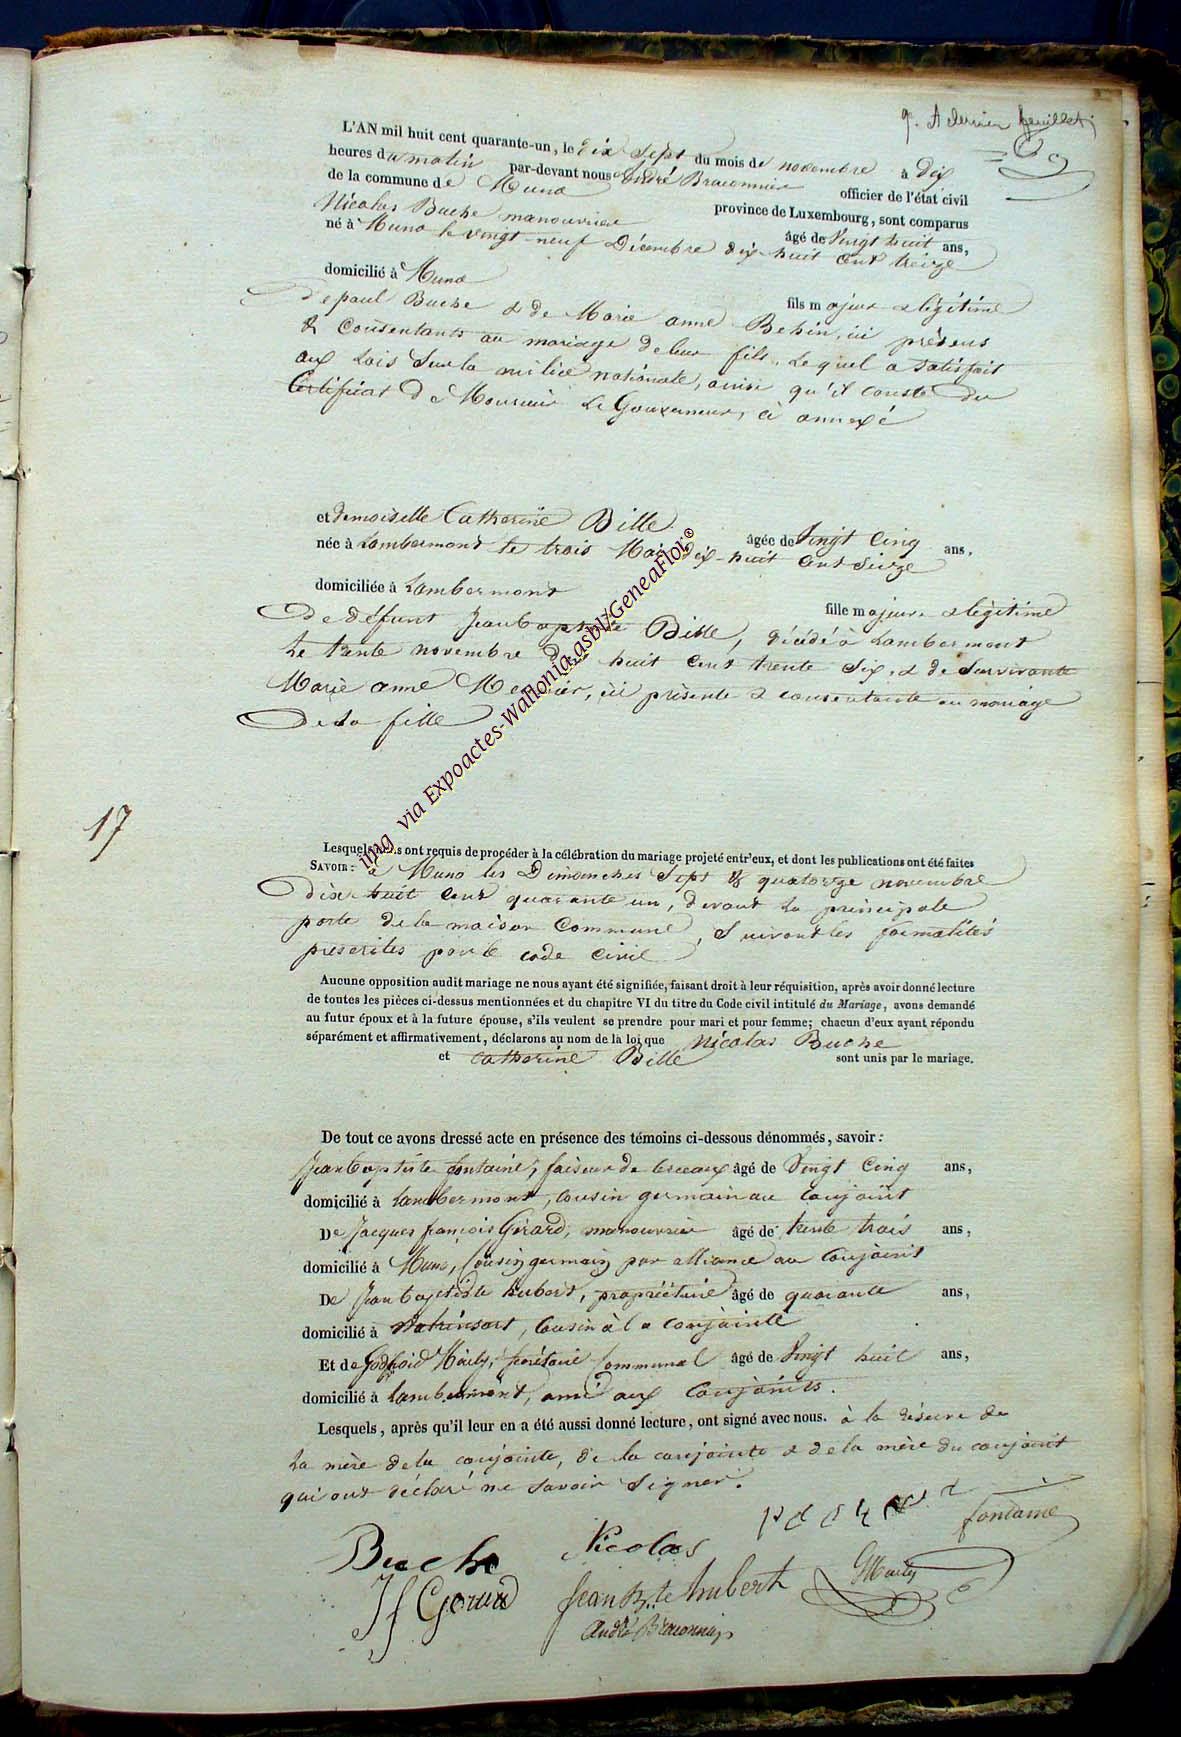 9. A dernier feuillet
L'AN mil huit cent quarante-un, le dix Sept du mois de novembre à Dix
heures du matin par-devant nous André Braconnier officier de l'état civil
de la commune de Muno province de Luxembourg, sont comparus
Nicolas Buche manouvrier âgé de Vingt huit ans,
né à Muno le vingt-neuf Décembre dix-huit cent treize
domicilié à Muno fils majeur & légitime
De paul Buche & de Marie anne Behin, ici présens
& Consentants au mariage de leur fils, Lequel a satisfait
aux Lois Sur la milice nationale, ainsi qu'il conste du
Certificat De Monsieur Le Gouverneur, ci annexé
et demoiselle Catherine Bille âgée de Vingt Cinq ans,
née à Lambermont le trois Mai dix-huit Cent Seize
domiciliée à Lambermont fille majeure & légitime
De défunt Jean baptiste Bille, décédé à Lambermont
Le trente novembre dix huit Cent trente Six, & de Survivante
Marie anne , ici présente & consentante au mariage
De Sa fille
17
Lesquels nous ont requis de procéder à la célébration du mariage projeté entr'eux, et dont les publications ont été faites
SAVOIR: à Muno les Dimanches Sept & quatorze novembre
Dix huit Cent quarante un, devant La principale
porte de la maison Commune, Suivant les formalités
prescrites par le code Civil
Aucune opposition audit mariage ne nous ayant été signifiée, faisant droit à leur réquisition, après avoir donné lecture
de toutes les pièces ci-dessus mentionnées et du chapitre VI du titre du Code civil intitulé du Mariage, avons demandé
au futur époux et à la future épouse, s'ils veulent se prendre pour mari et pour femme; chacun d'eux ayant répondu
séparément et affirmativement, déclarons au nom de la loi que Nicolas Buche
et Catherine Bille sont unis par le mariage.
De tout ce avons dressé acte en présence des témoins ci-dessous dénommés, savoir:
Jean baptiste fontaine, faiseur de berceaux âgé de Vingt Cinq ans,
domicilié à Lambermont, Cousin germain au Conjoint
De Jacques françois Gérard, manouvrier âgé de trente trois ans,
domicilié à Muno, Cousin germain par alliance au Conjoint
De Jean baptiste hubert, propriétaire âgé de quarante ans,
domicilié à Matrinsart, Cousin à la Conjointe
Et de Godfroid Marly, Secrétaire Communal âgé de Vingt huit ans,
domicilié à Lambermont, ami aux Conjoints.
Lesquels, après qu'il leur en a été aussi donné lecture, ont signé avec nous. à la réserve de
La mère de la conjointe, de la conjointe & de la mère du conjoint
qui ont déclaré ne Savoir Signer.
Buche Nicolas fontaine
J f Gerard Jean Bte hubert GMarly
André Braconnier
img via Expoactes-Wallonia.asbl/GeneaFlor©